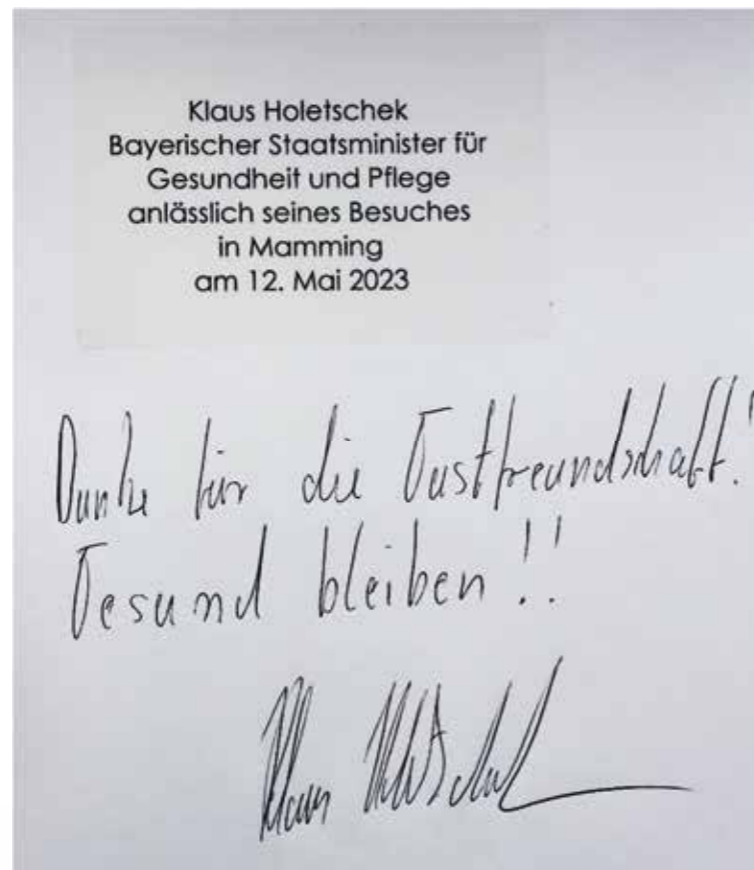 Klaus Holetschek
Bayerischer Staatsminister für
Gesundheit und Pflege
anlässlich seines Besuches
in Mamming
am 12. Mai 2023
Danke für die Gastfreundschaft!
Gesund bleiben!!
Klaus Holetschek